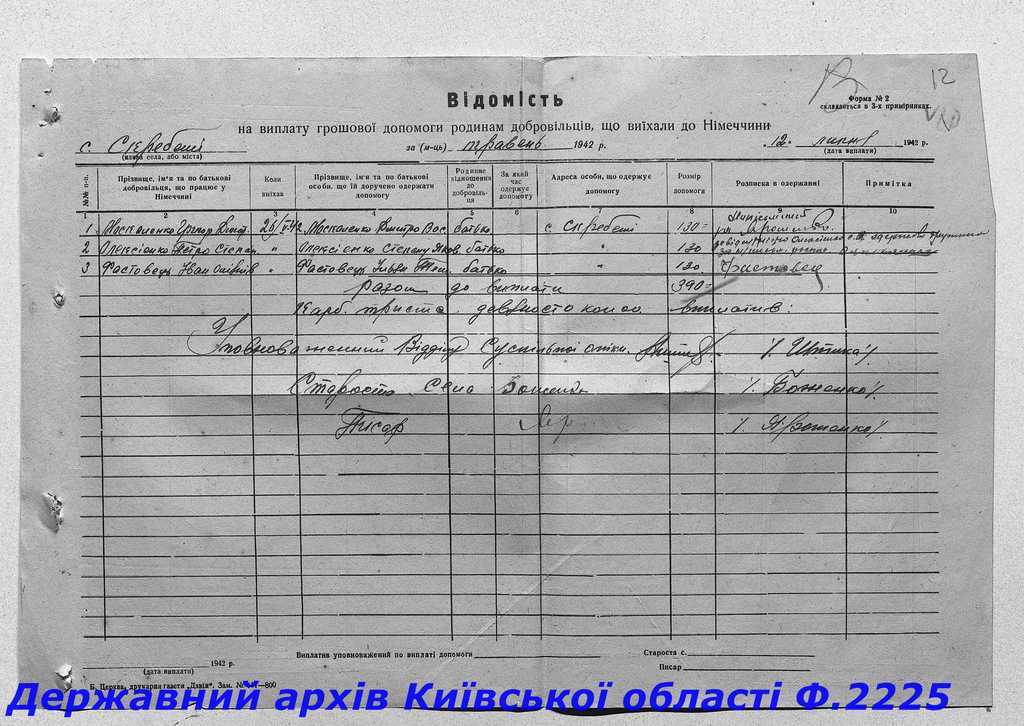 12
Відомість
Форма № 2
складається в 3-х примірниках.
на виплату грошової допомоги родинам добровільців, що виїхали до Німеччини
с. за (м-ць) травень 1942 р. 12. липня 1942 р.
(назва села, або міста) (дата виплати)
№№ п-п. Прізвище, ім'я та по батькові добровільця, що працює у Німеччині Коли виїхав Прізвище, ім'я та по батькові особи, що їй доручено одержати допомогу Родинне відношення до добровільця За який час одержує допомогу Адреса особи, що одержує допомогу Розмір допомоги Розписка в одержанні Примітка
1 2 3 4 5 6 7 8 9 10
1 Москаленко 26/V-42 Москаленко Дмитро Вас. батько с. 130-
2 Олексієнко Петро Степан. " Олексієнко Степану Яков. батько " 130
3 Фастовець Іван " Фастовець батько " 130 Фастовец
разом до виплати 390-
Карб. триста дев'яносто коп. оо. виплатив:
Уповноважений Відділу Суспільної опіки /. Шпика /.
Староста Села /. Боженко /.
Писар /. Ярошенко /.
1942 р.
(дата виплати)
Виплатив уповноважений по виплаті допомоги
Староста с.
Писар
Б. Церква, друкарня газети „Дзвін". Зам. № —800
Державний архів Київської області Ф.2225